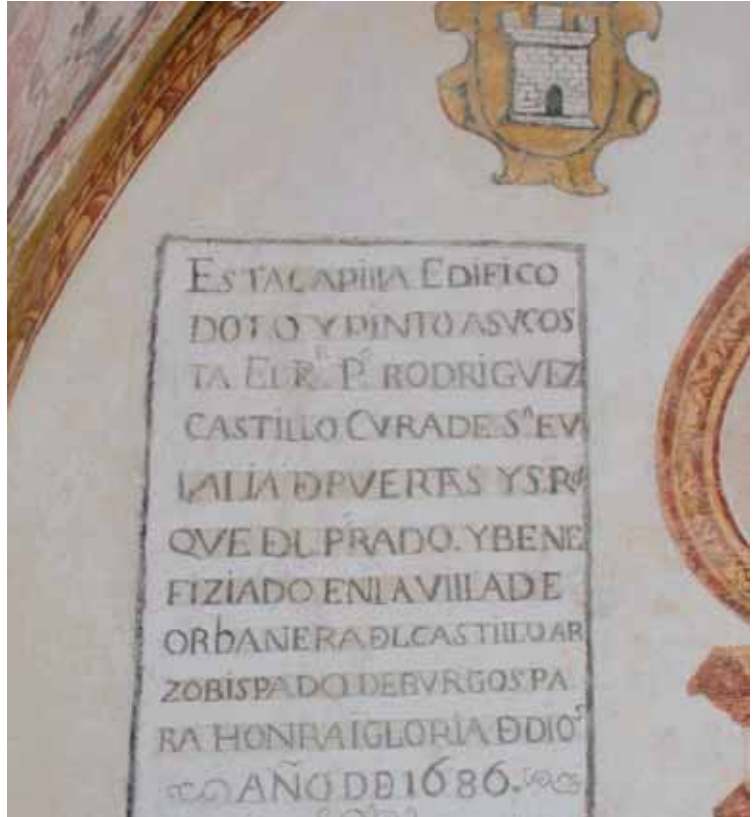 ESTA CAPILLA EDIFICO
DOTO Y PINTO A SV COS
TA EL R.ᴰ P.º RODRIGVEZ
CASTILLO CVRA DE S.ᴬ EV
LALIA ĐPVERTAS Y S. RO
QVE ĐL PRADO. Y BENE
FIZIADO EN LA VILLA DE
ORbANERA ĐL CASTILLO AR
ZOBISPADO DE BVRGOS PA
RA HONRA I GLORIA Đ DIOS
AÑO DE 1686.